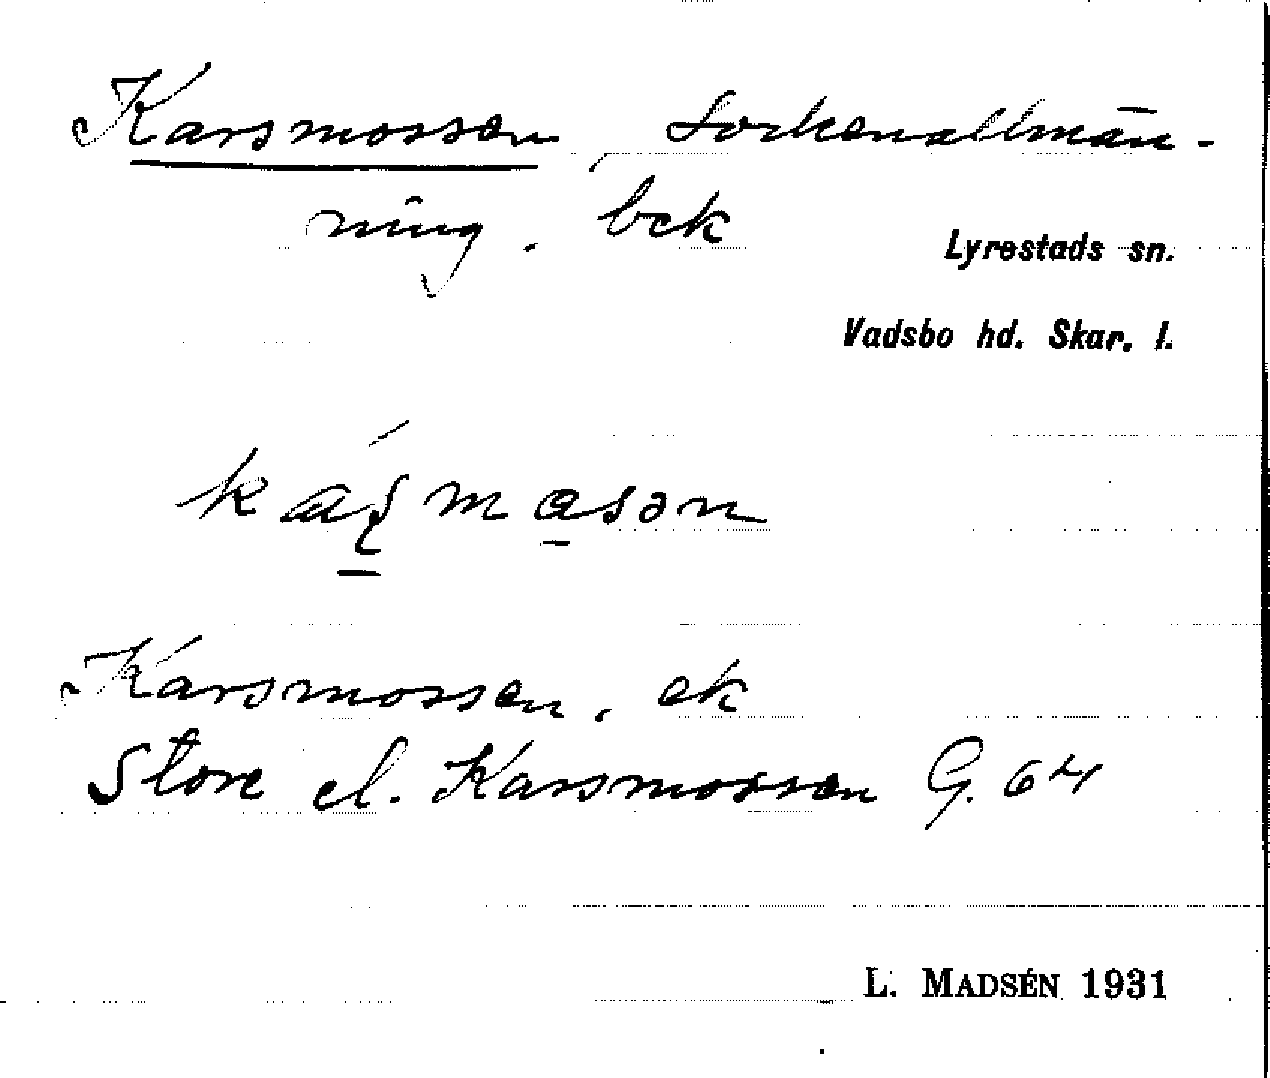 Karsmossen, Sockenallmän-
ning. bek
Lyrestads sn.
Vadsbo hd. Skar. l.
Karsmossen, ek
Store el. Karsmossen G. 64
L. MADSÉN 1931